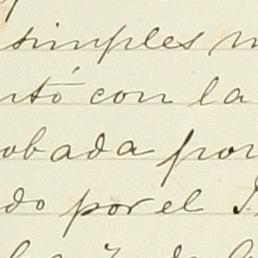 simples
ntó con la
obada por
do por el